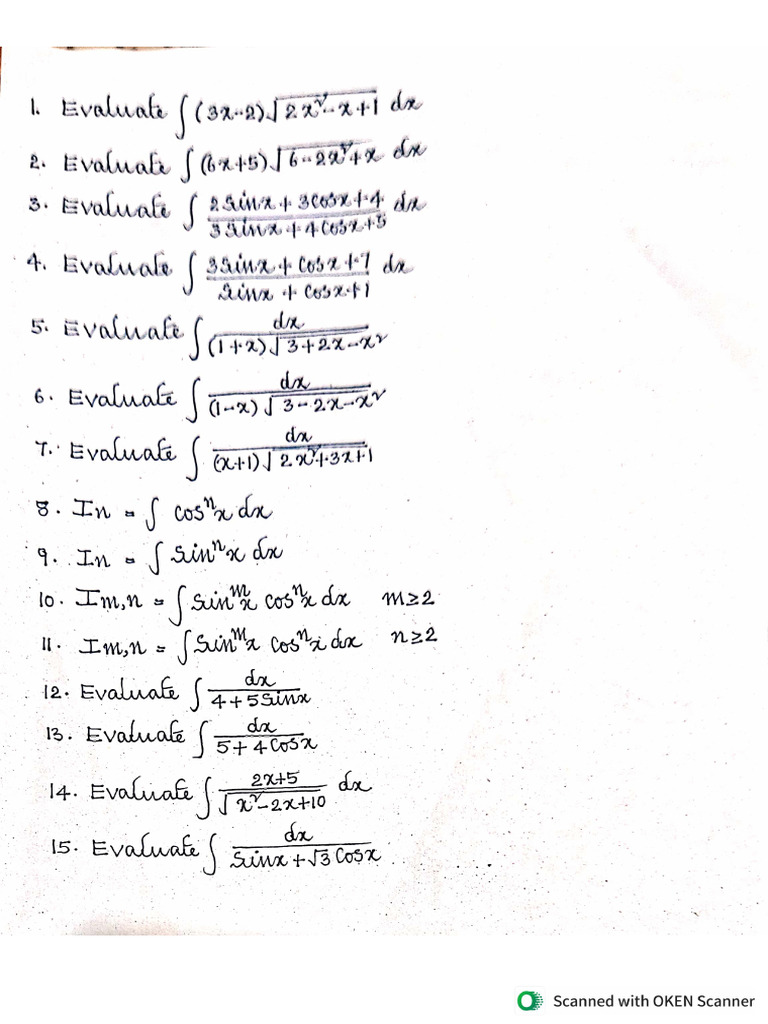 1. Evaluate ∫(3x-2)√(2x²-x+1) dx
2. Evaluate ∫(6x+5)√(6-2x²+x) dx
3. Evaluate ∫ (2sinx + 3cosx + 4)/(3sinx + 4cosx + 5) dx
4. Evaluate ∫ (3sinx + cosx + 7)/(sinx + cosx + 1) dx
5. Evaluate ∫ dx/((1+x)√(3+2x-x²))
6. Evaluate ∫ dx/((1-x)√(3-2x-x²))
7. Evaluate ∫ dx/((x+1)√(2x²+3x+1))
8. In = ∫ cosⁿx dx
9. In = ∫ sinⁿx dx
10. Im,n = ∫sinᵐx cosⁿx dx m≥2
11. Im,n = ∫sinᵐx cosⁿx dx n≥2
12. Evaluate ∫ dx/(4+5sinx)
13. Evaluate ∫ dx/(5+4cosx)
14. Evaluate ∫ (2x+5)/√(x²-2x+10) dx
15. Evaluate ∫ dx/(sinx+√3 cosx)
Scanned with OKEN Scanner